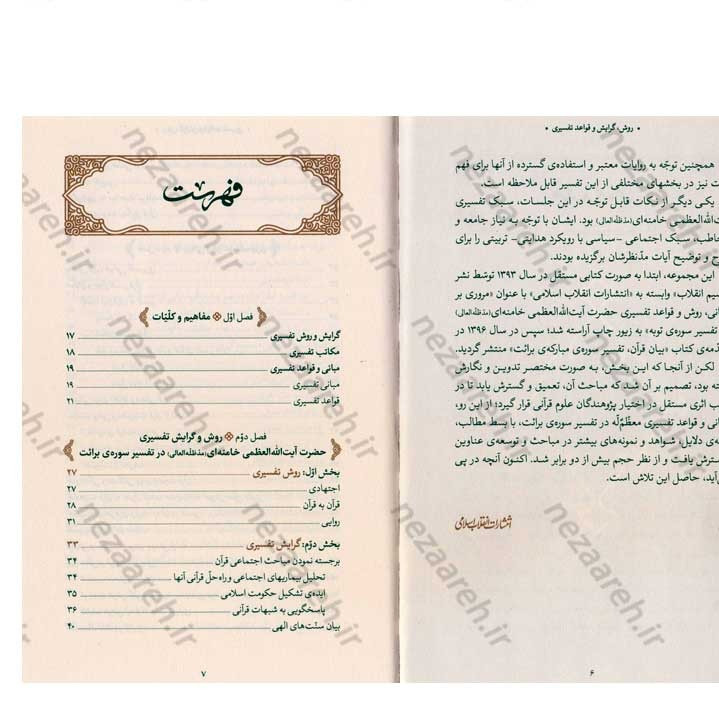 • روش، گرایش و قواعد تفسیری •
همچنین توجّه به روایات معتبر و استفاده‌ی گسترده از آنها برای فهم
نیز در بخشهای مختلفی از این تفسیر قابل ملاحظه است.
یکی دیگر از نکات قابل توجّه در این جلسات، سبک تفسیری
الله‌العظمی خامنه‌ای (مدّظلّه‌العالی) بود. ایشان با توجّه به نیاز جامعه و
سبک اجتماعی -سیاسی با رویکرد هدایتی- تربیتی را برای
و توضیح آیات مدّنظرشان برگزیده بودند.
این مجموعه، ابتدا به صورت کتابی مستقل در سال ۱۳۹۳ توسّط نشر
انقلاب» وابسته به «انتشارات انقلاب اسلامی» با عنوان «مروری بر
روش و قواعد تفسیری حضرت آیت‌الله‌العظمی خامنه‌ای (مدّظلّه‌العالی)
تفسیر سوره‌ی توبه» به زیور چاپ آراسته شد؛ سپس در سال ۱۳۹۶ در
کتاب «بیان قرآن، تفسیر سوره‌ی مبارکه‌ی برائت» منتشر گردید.
لکن از آنجا که این بخش، به صورت مختصر تدوین و نگارش
بود، تصمیم بر آن شد که مباحث آن، تعمیق و گسترش یابد تا در
اثری مستقل در اختیار پژوهندگان علوم قرآنی قرار گیرد؛ از این رو،
و قواعد تفسیری معظّمٌ‌له در تفسیر سوره‌ی برائت، با بسط مطالب،
دلایل، شواهد و نمونه‌های بیشتر در مباحث و توسعه‌ی عناوین
یافت و از نظر حجم بیش از دو برابر شد. اکنون آنچه در پی
حاصل این تلاش است.
انتشارات انقلاب اسلامی
۶
فهرست
فصل اوّل مفاهیم و کلّیّات
گرایش و روش تفسیری ۱۷
مکاتب تفسیری ۱۸
مبانی و قواعد تفسیری ۱۹
مبانی تفسیری ۱۹
قواعد تفسیری ۲۱
فصل دوّم روش و گرایش تفسیری
حضرت آیت‌الله‌العظمی خامنه‌ای (مدّظلّه‌العالی) در تفسیر سوره‌ی برائت
بخش اوّل: روش تفسیری ۲۷
اجتهادی ۲۷
قرآن به قرآن ۲۸
روایی ۳۱
بخش دوّم: گرایش تفسیری ۳۳
برجسته نمودن مباحث اجتماعی قرآن ۳۴
تحلیل بیماریهای اجتماعی و راه‌حلّ قرآنی آنها ۳۴
ایده‌ی تشکیل حکومت اسلامی ۳۵
پاسخگویی به شبهات قرآنی ۳۶
بیان سنّت‌های الهی ۴۰
۷
nezaareh.ir